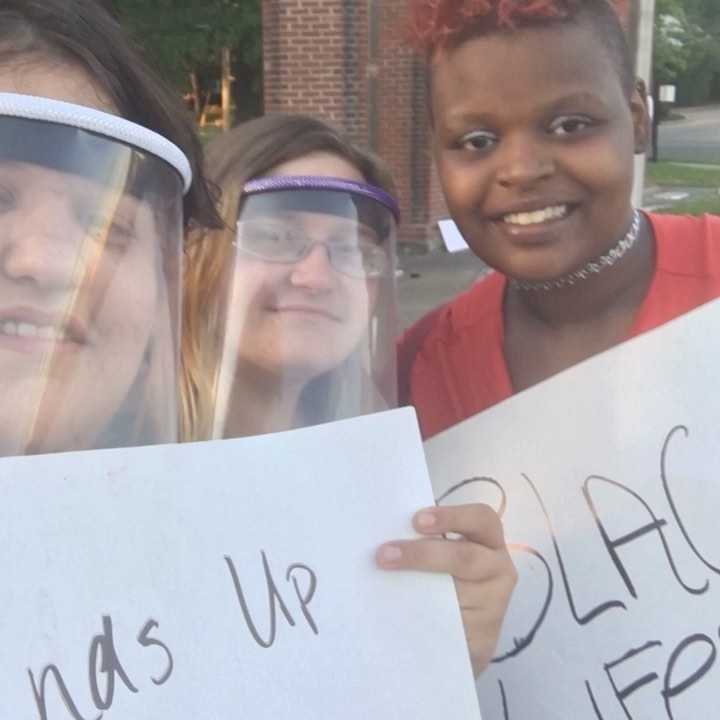 nds Up
BLAC
LIFE